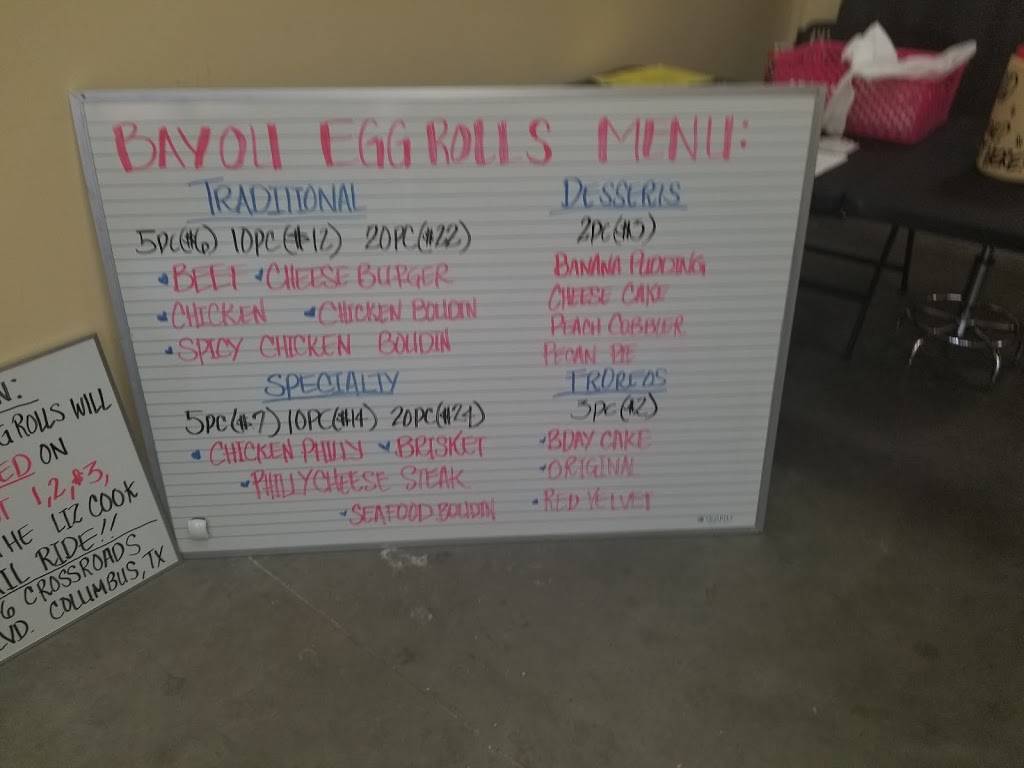 BAYOU EGG ROLLS MENU:
TRADITIONAL
5PC($6) 10PC($12) 20PC($22)
BEEF CHEESE BURGER
CHICKEN CHICKEN BOUDIN
SPICY CHICKEN BOUDIN
SPECIALTY
5PC($7) 10PC($14) 20PC($24)
CHICKEN PHILLY BRISKET
PHILLY CHEESE STEAK
SEAFOOD BOUDIN
DESSERTS
2PC($5)
BANANA PUDDING
CHEESE CAKE
PEACH COBBLER
PECAN PIE
FROREOS
3PC($2)
BDAY CAKE
ORIGINAL
RED VELVET
G ROLLS WILL
ED ON
T 1,2,&3,
THE LIZ COOK
IL RIDE!!
6 CROSSROADS
VD. COLUMBUS, TX